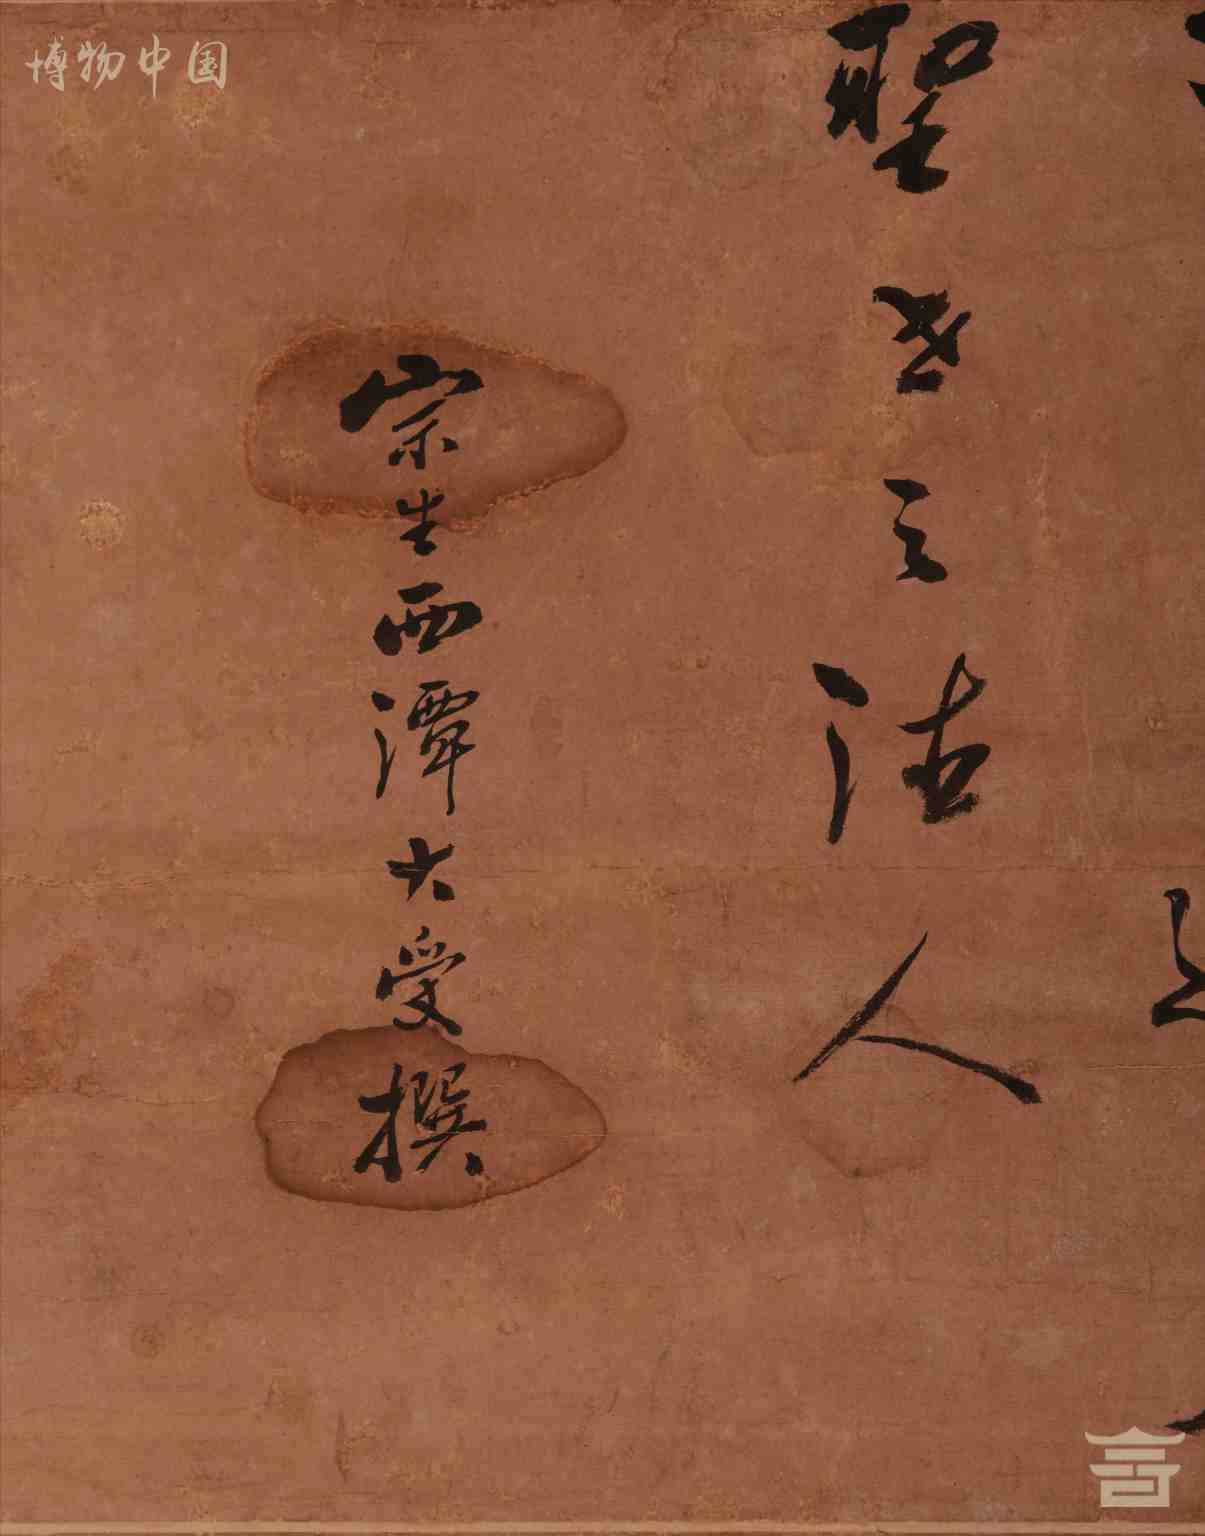 博物中国
聖世之德人
宗生西潭大受撰